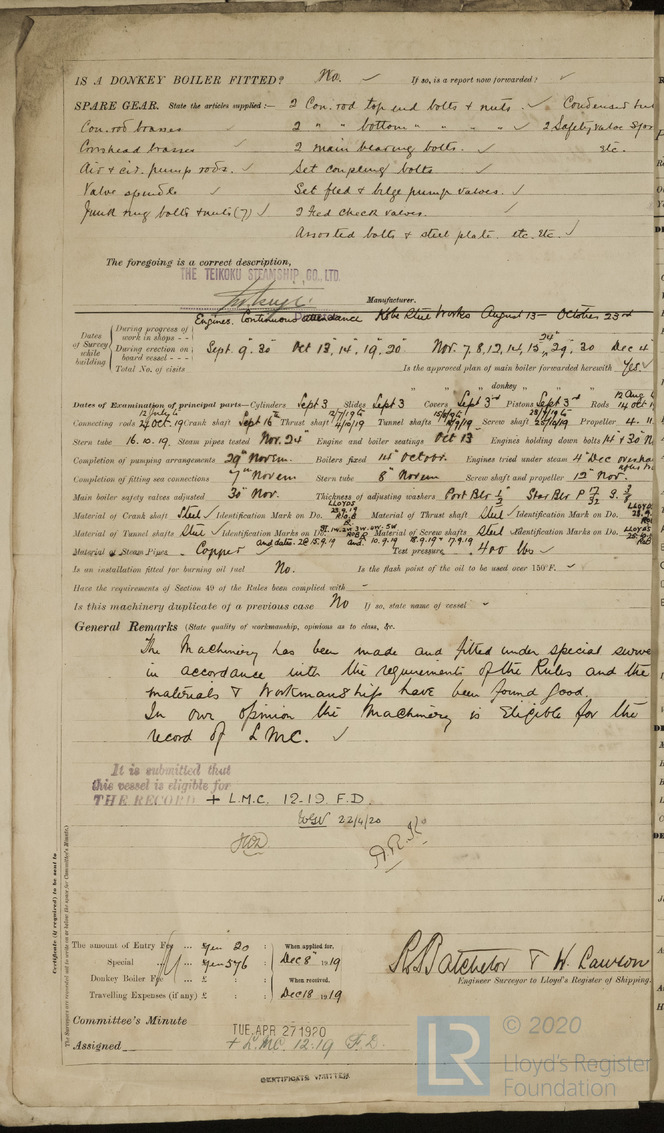 IS A DONKEY BOILER FITTED? No. ✓ If so, is a report now forwarded? ✓
SPARE GEAR. State the articles supplied:— 2 Con. rod top end bolts & nuts. ✓ Condenser
Con. rod brasses ✓ 2 " " bottom " " " ✓ 2 Safety valve
Crosshead brasses ✓ 2 main bearing bolts. ✓ etc.
Air & cir. pump rods. ✓ Set coupling bolts ✓
Valve spindle ✓ Set feed & bilge pump valves. ✓
Junk ring bolts & nuts (7) ✓ 2 Feed check valves. ✓
Assorted bolts & steel plate. etc. etc. ✓
The foregoing is a correct description,
THE TEIKOKU STEAMSHIP, CO., LTD.
Manufacturer.
Engines. Continuous attendance Kobe Steel Works August 13 — October 23rd
Dates of Survey while building
During progress of work in shops - -
During erection on board vessel - - - Sept. 9. 30 Oct 13, 14, 19, 20 Nov. 7, 8, 12, 14, 15, 24, 29, 30 Dec 4
Total No. of visits Is the approved plan of main boiler forwarded herewith Yes ✓
" " " donkey " " "
Dates of Examination of principal parts—Cylinders Sept 3 Slides Sept 3 Covers Sept 3rd Pistons Sept 3rd Rods 12 Aug 14 Oct
Connecting rods 12 July 24 Oct. 19 Crank shaft Sept 16th Thrust shaft 2/7/19 4/10/19 Tunnel shafts Screw shaft Propeller 4. 11.
Stern tube 16. 10. 19 Steam pipes tested Nov. 24 Engine and boiler seatings Oct 13 Engines holding down bolts 14 & 30
Completion of pumping arrangements 29th Novem. Boilers fixed 14th October. Engines tried under steam 4th Dec
Completion of fitting sea connections 7th Novem Stern tube 8th Novem Screw shaft and propeller 12th Nov.
Main boiler safety valves adjusted 30th Nov. Thickness of adjusting washers Port Blr Star Blr P S. 3/8
Material of Crank shaft Steel ✓ Identification Mark on Do. LLOYDS Material of Thrust shaft Steel ✓ Identification Mark on Do. LLOYDS
Material of Tunnel shafts Steel ✓ Identification Marks on Do. Material of Screw shafts Steel Identification Marks on Do. LLOYDS
Material of Steam Pipes Copper Test pressure 400 lbs ✓
Is an installation fitted for burning oil fuel No. Is the flash point of the oil to be used over 150°F. ✓
Have the requirements of Section 49 of the Rules been complied with –
Is this machinery duplicate of a previous case No If so, state name of vessel ✓
General Remarks (State quality of workmanship, opinions as to class, &c.
The Machinery has been made and fitted under special
in accordance with the requirements of the Rules and the
materials & Workmanship have been found good.
In our opinion the Machinery is Eligible for the
record of LMC. ✓
It is submitted that
this vessel is eligible for
THE RECORD + L.M.C. 12-19. F.D.
22/4/20
A.R.K.
Certificate (if required) to be sent to
The amount of Entry Fee ... Yen 20 : When applied for.
Special ... Yen 576 : Dec 8th 1919
Donkey Boiler Fee ... £ : : When received.
Travelling Expenses (if any) £ : : Dec 18 1919
R. Batchelor & W. Lawson
Engineer Surveyor to Lloyd's Register of Shipping.
Committee's Minute TUE. APR 27 1920
Assigned + L.M.C. 12.19 F.D.
CERTIFICATE WRITTEN
© 2020
Lloyd's Register
Foundation